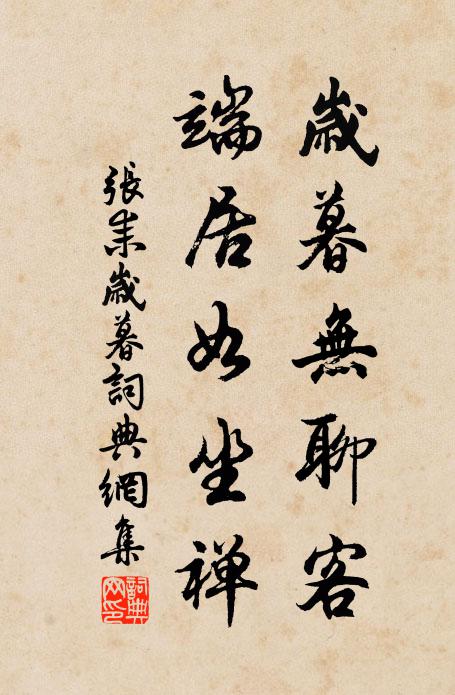 歲暮無聊客
端居如坐禪
張耒歲暮詞典網集
詞典網印